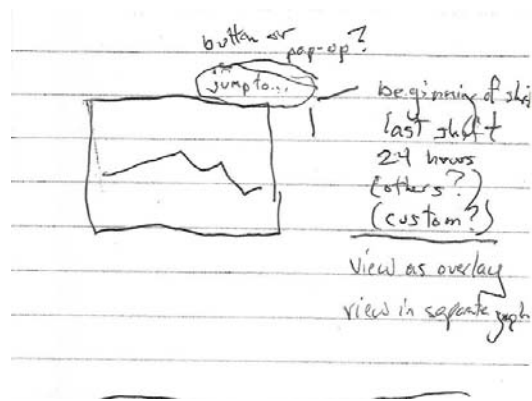 button or
pop-up?
jump to...
beginning of shi
last shift
24 hours
(others?)
(custom?)
view as overlay
view in separate graph